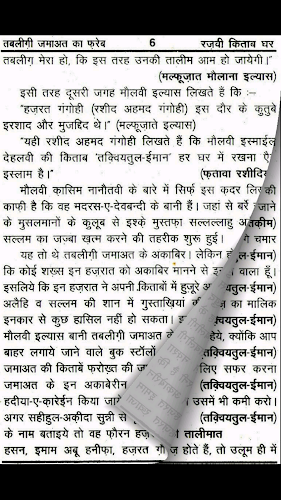 तबलीगी जमाअत का फ़रेब 6 रज़वी किताब घर
तबलीग़ मेरा हो, कि इस तरह उनकी तालीम आम हो जायेगी।"
(मल्फूज़ात मौलाना इल्यास)
इसी तरह दूसरी जगह मौलवी इल्यास लिखते हैं कि :–
"हज़रत गंगोही (रशीद अहमद गंगोही) इस दौर के कुतुबे
इरशाद और मुजद्दिद थे।" (मल्फूज़ाते इल्यास)
"यही रशीद अहमद गंगोही लिखते हैं कि मौलवी इस्माईल
देहलवी की किताब 'तक़्वियतुल-ईमान' हर घर में रखना ऐ
इस्लाम है।" (फ़तावा रशीदि
मौलवी क़ासिम नानौतवी के बारे में सिर्फ़ इस क़दर लि
काफ़ी है कि वह मदरस-ए-देवबन्दी के बानी हैं। जहां से बर्रे
के मुसलमानों के कुलूब से इश्क़े मुस्तफ़ा सल्लल्लाहु अ
सल्लम का जज़्बा ख़त्म करने की तहरीक शुरू हुई। चमार
यह तो थे तबलीगी जमाअत के अकाबिर। लेकिन ह ल-ईमान)
कि कोई शख़्स इन हज़रात को अकाबिर मानने से इन वाला हूँ।
इसलिये कि इन हज़रात ने अपनी किताबों में हुज़ूरे अ यतुल-ईमान)
अलैहि व सल्लम की शान में गुस्ताख़ियां की का मालिक
इनकार से कुछ हासिल नहीं हो सकता। इ यतुल-ईमान)
मौलवी इल्यास बानी तबलीगी जमाअत ने हिये, क्योंकि आप
बाहर लगाये जाने वाले बुक स्टॉलों (तक़्वियतुल-ईमान)
जमाअत की किताबें फ़रोख़्त की ज लिए सफर करना
जमाअत के इन अकाबेरीन (तक़्वियतुल-ईमान)
हदीया-ए-क़ारेईन किया जाये उसमें भी कमी करो।
अगर सहीहुल-अक़ीदा सुन्नी से (तक़्वियतुल-ईमान)
के नाम बताइये तो वह फ़ौरन हज़ तालीमात
हसन, इमाम अबू हनीफ़ा, हज़रत ग़ौ ज होते हैं, तो उलूम ही में